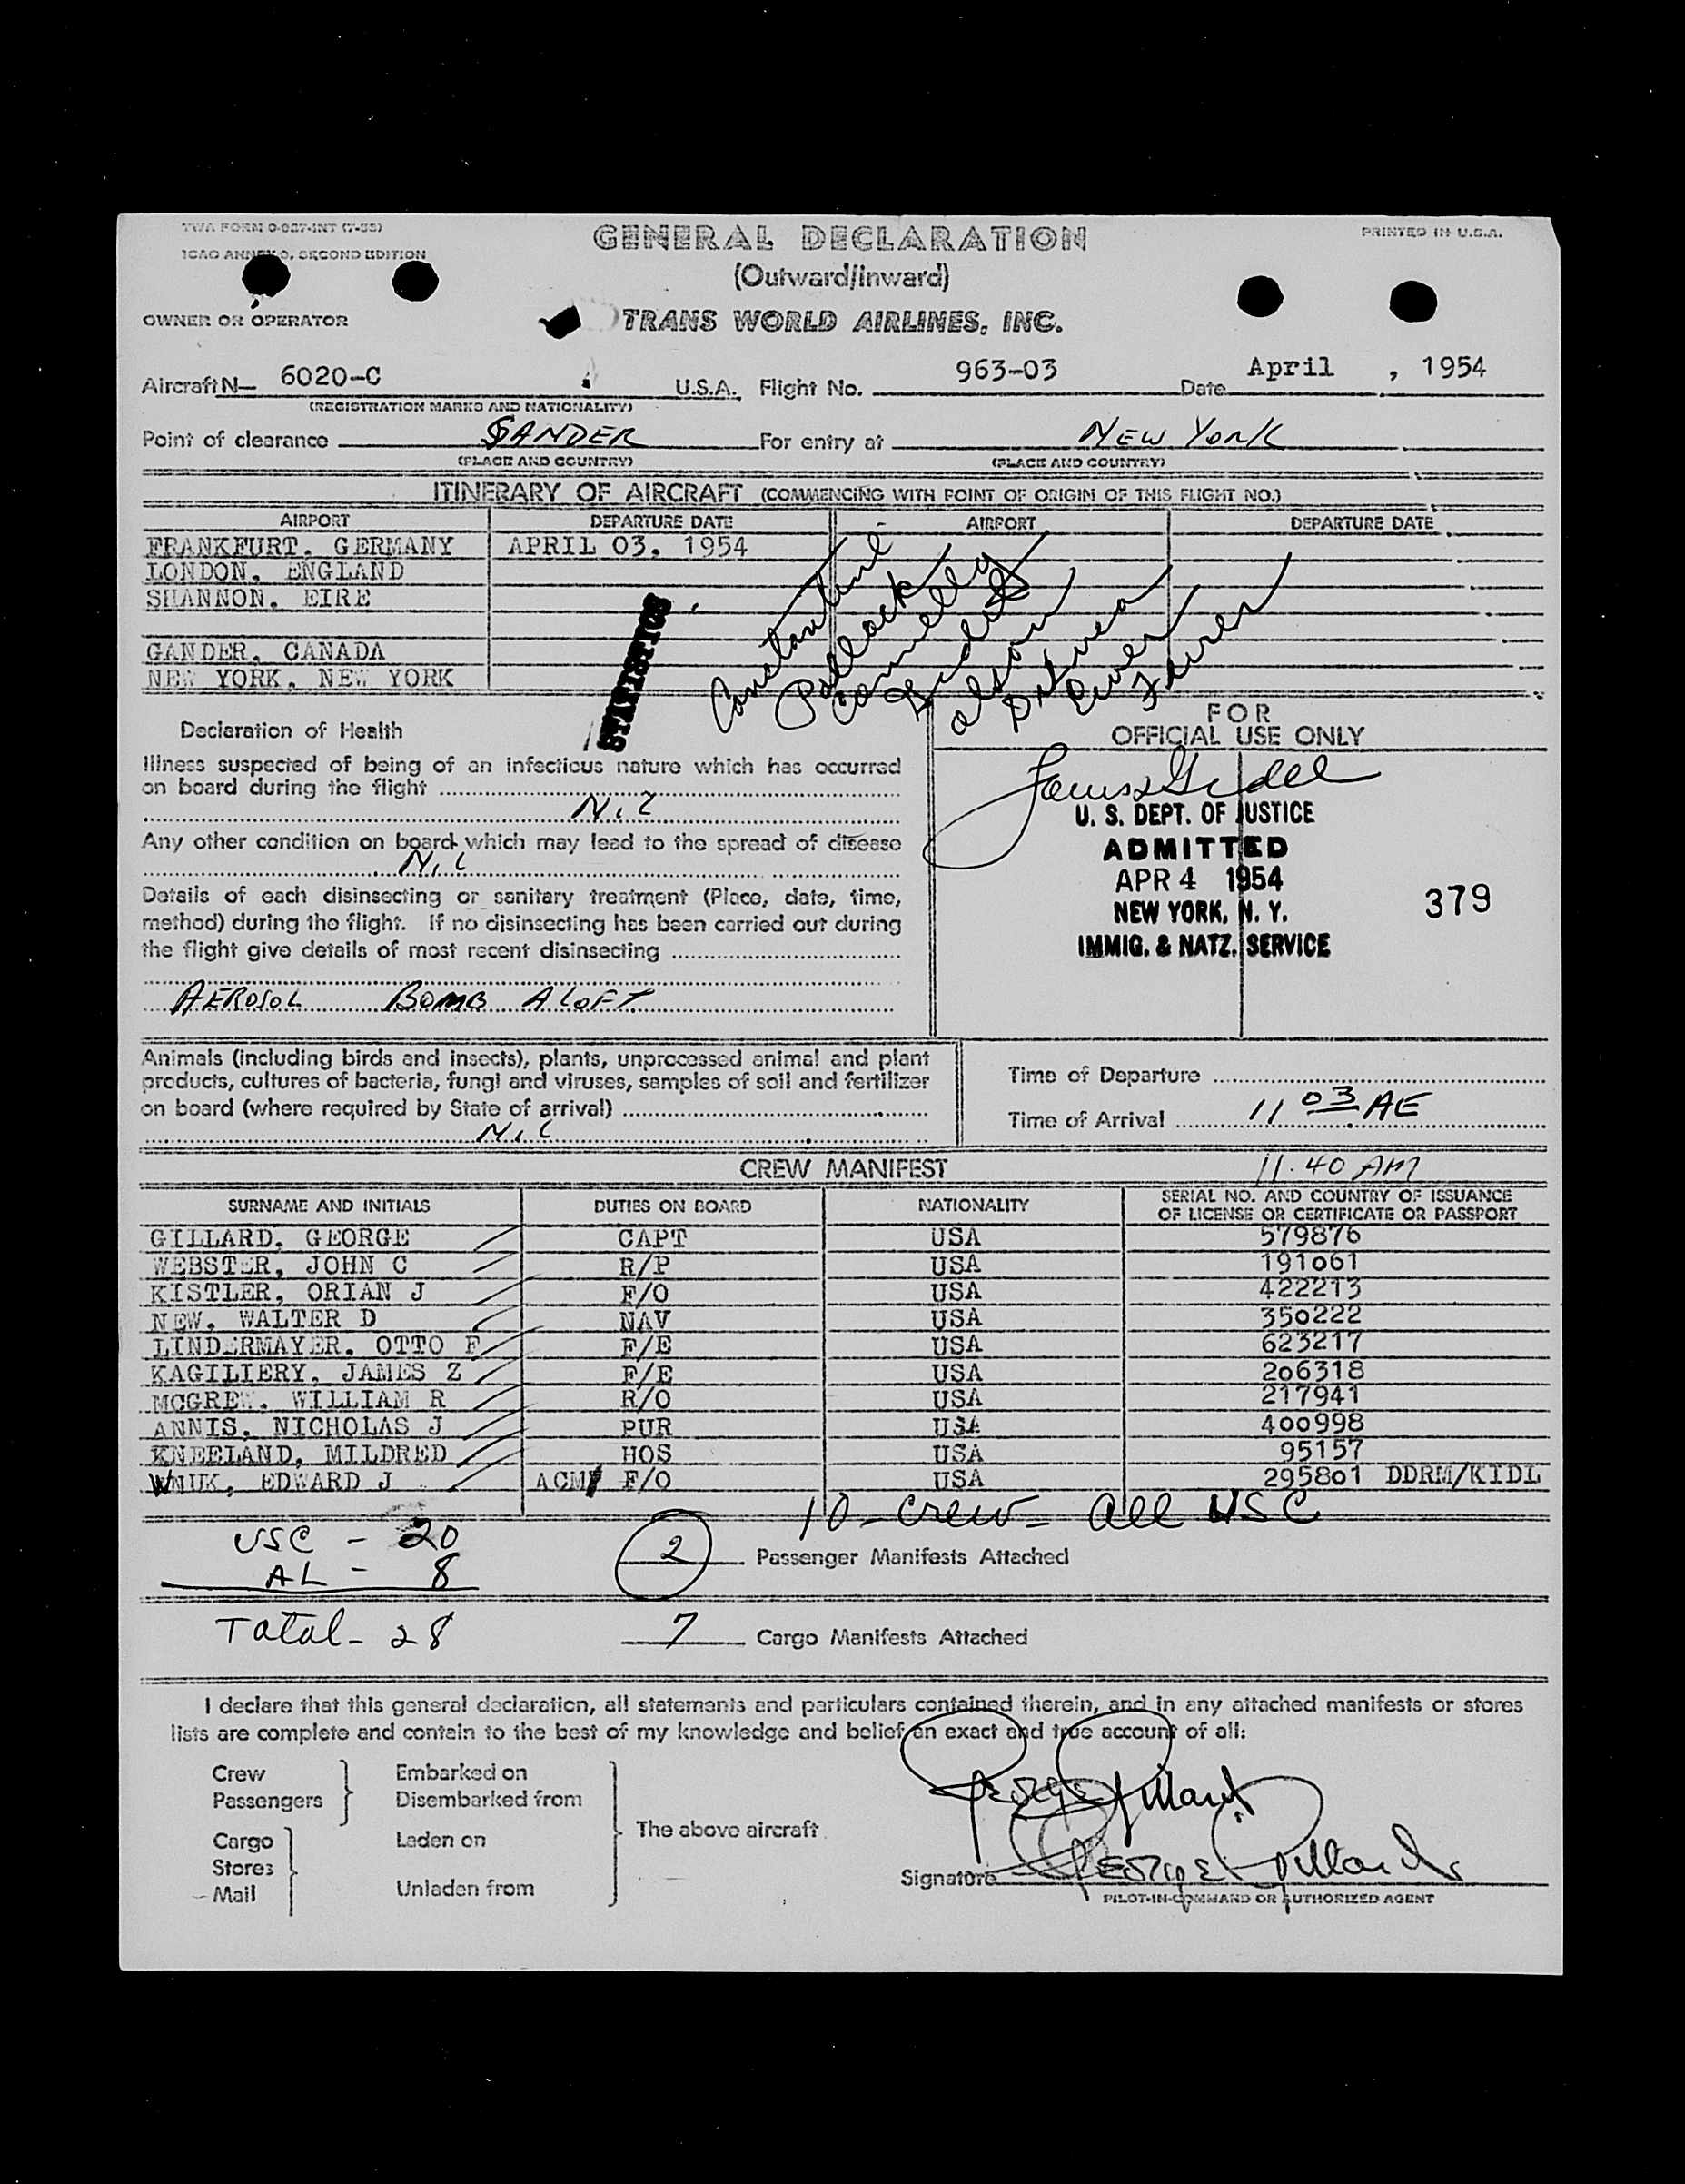 TWA FORM O-827-INT (7-53)
GENERAL DECLARATION
PRINTED IN U.S.A.
ICAO ANNEX 9, SECOND EDITION
(Outward/Inward)
OWNER OR OPERATOR
TRANS WORLD AIRLINES, INC.
Aircraft N— 6020-C U.S.A. Flight No. 963-03 Date April , 1954
(REGISTRATION MARKS AND NATIONALITY)
Point of clearance GANDER For entry at NEW YORK
(PLACE AND COUNTRY) (PLACE AND COUNTRY)
ITINERARY OF AIRCRAFT (COMMENCING WITH POINT OF ORIGIN OF THIS FLIGHT NO.)
AIRPORT DEPARTURE DATE AIRPORT DEPARTURE DATE
FRANKFURT, GERMANY APRIL 03, 1954
LONDON, ENGLAND
SHANNON, EIRE
GANDER, CANADA
NEW YORK, NEW YORK
STATISTICS
Constantine
Pollack
Connelly
Olson
Owen
Declaration of Health
FOR
OFFICIAL USE ONLY
Illness suspected of being of an infectious nature which has occurred
on board during the flight
Nil
Any other condition on board which may lead to the spread of disease
Nil
Details of each disinsecting or sanitary treatment (Place, date, time,
method) during the flight. If no disinsecting has been carried out during
the flight give details of most recent disinsecting
AEROSOL BOMB ALOFT
U. S. DEPT. OF JUSTICE
ADMITTED
APR 4 1954
NEW YORK, N. Y.
IMMIG. & NATZ. SERVICE
379
Animals (including birds and insects), plants, unprocessed animal and plant
products, cultures of bacteria, fungi and viruses, samples of soil and fertilizer
on board (where required by State of arrival)
Nil
Time of Departure
Time of Arrival 11 03 AE
11.40 AM
CREW MANIFEST
SURNAME AND INITIALS DUTIES ON BOARD NATIONALITY SERIAL NO. AND COUNTRY OF ISSUANCE OF LICENSE OR CERTIFICATE OR PASSPORT
GILLARD, GEORGE CAPT USA 579876
WEBSTER, JOHN C R/P USA 191061
KISTLER, ORIAN J F/O USA 422213
NEW, WALTER D NAV USA 350222
LINDERMAYER, OTTO F F/E USA 623217
KAGILIERY, JAMES Z F/E USA 206318
MCGREW, WILLIAM R R/O USA 217941
ANNIS, NICHOLAS J PUR USA 400998
KNEELAND, MILDRED HOS USA 95157
WNUK, EDWARD J ACM F/O USA 295801 DDRM/KIDL
10 - Crew - all USC
USC - 20
AL - 8
2 Passenger Manifests Attached
Total - 28
7 Cargo Manifests Attached
I declare that this general declaration, all statements and particulars contained therein, and in any attached manifests or stores
lists are complete and contain to the best of my knowledge and belief an exact and true account of all:
Crew
Passengers
Embarked on
Disembarked from
Cargo
Stores
Mail
Laden on
Unladen from
The above aircraft
George Gillard
Signature George Gillard
PILOT-IN-COMMAND OR AUTHORIZED AGENT